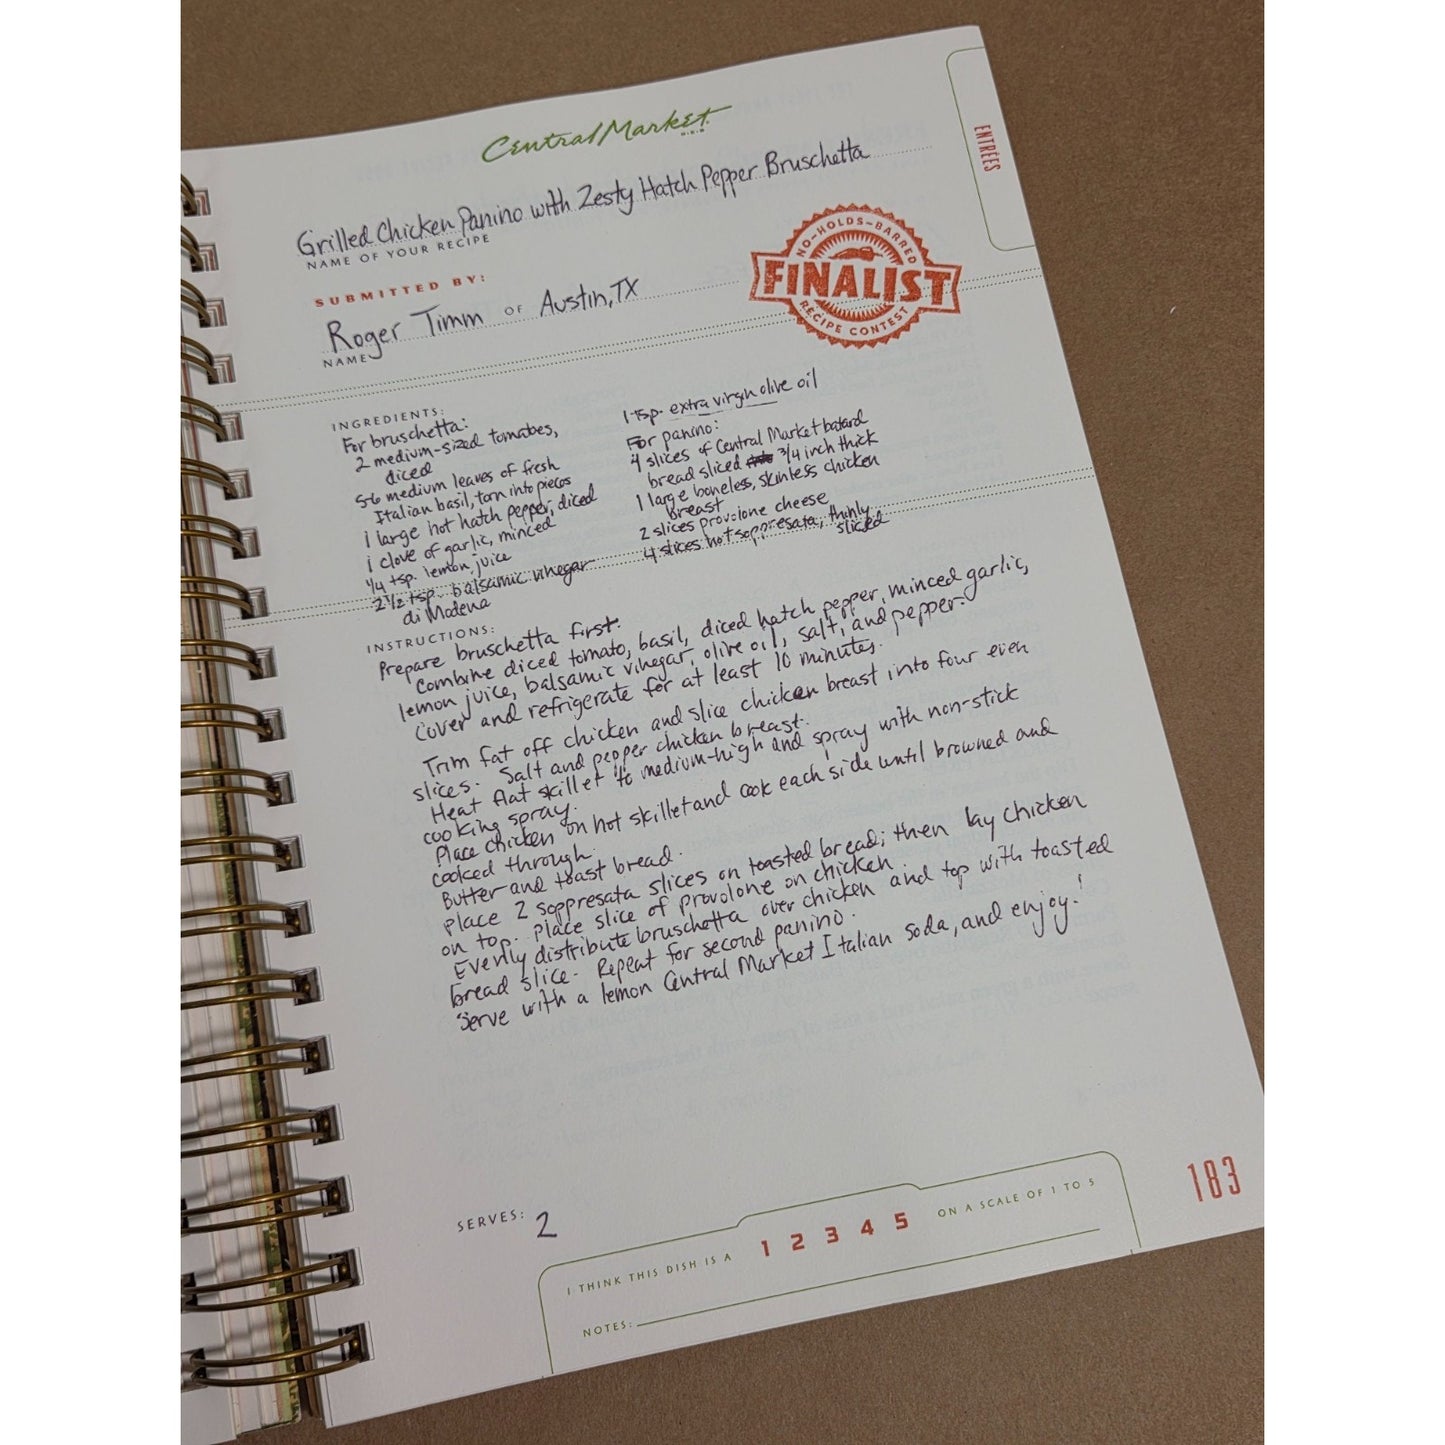 Central Market
H-E-B
ENTRÉES
Grilled Chicken Panino with Zesty Hatch Pepper Bruschetta
NAME OF YOUR RECIPE
NO-HOLDS-BARRED
FINALIST
RECIPE CONTEST
SUBMITTED BY:
Roger Timm OF Austin, TX
NAME
INGREDIENTS:
For bruschetta:
2 medium-sized tomatoes,
diced
5-6 medium leaves of fresh
Italian basil, torn into pieces
1 large hot hatch pepper, diced
1 clove of garlic, minced
1/4 tsp. lemon juice
2 1/2 tsp. balsamic vinegar
di Modena
1 tsp. extra virgin olive oil
For panino:
4 slices of Central Market batard
bread sliced 3/4 inch thick
1 large boneless, skinless chicken
breast
2 slices provolone cheese
4 slices hot soppresata, thinly
sliced
INSTRUCTIONS:
Prepare bruschetta first.
Combine diced tomato, basil, diced hatch pepper, minced garlic,
lemon juice, balsamic vinegar, olive oil, salt, and pepper.
Cover and refrigerate for at least 10 minutes.
Trim fat off chicken and slice chicken breast into four even
slices. Salt and pepper chicken breast.
Heat flat skillet to medium-high and spray with non-stick
cooking spray.
Place chicken on hot skillet and cook each side until browned and
cooked through.
Butter and toast bread.
Place 2 soppresata slices on toasted bread; then lay chicken
on top. Place slice of provolone on chicken.
Evenly distribute bruschetta over chicken and top with toasted
bread slice. Repeat for second panino.
Serve with a lemon Central Market Italian soda, and enjoy!
SERVES: 2
I THINK THIS DISH IS A 1 2 3 4 5 ON A SCALE OF 1 TO 5
NOTES:
183